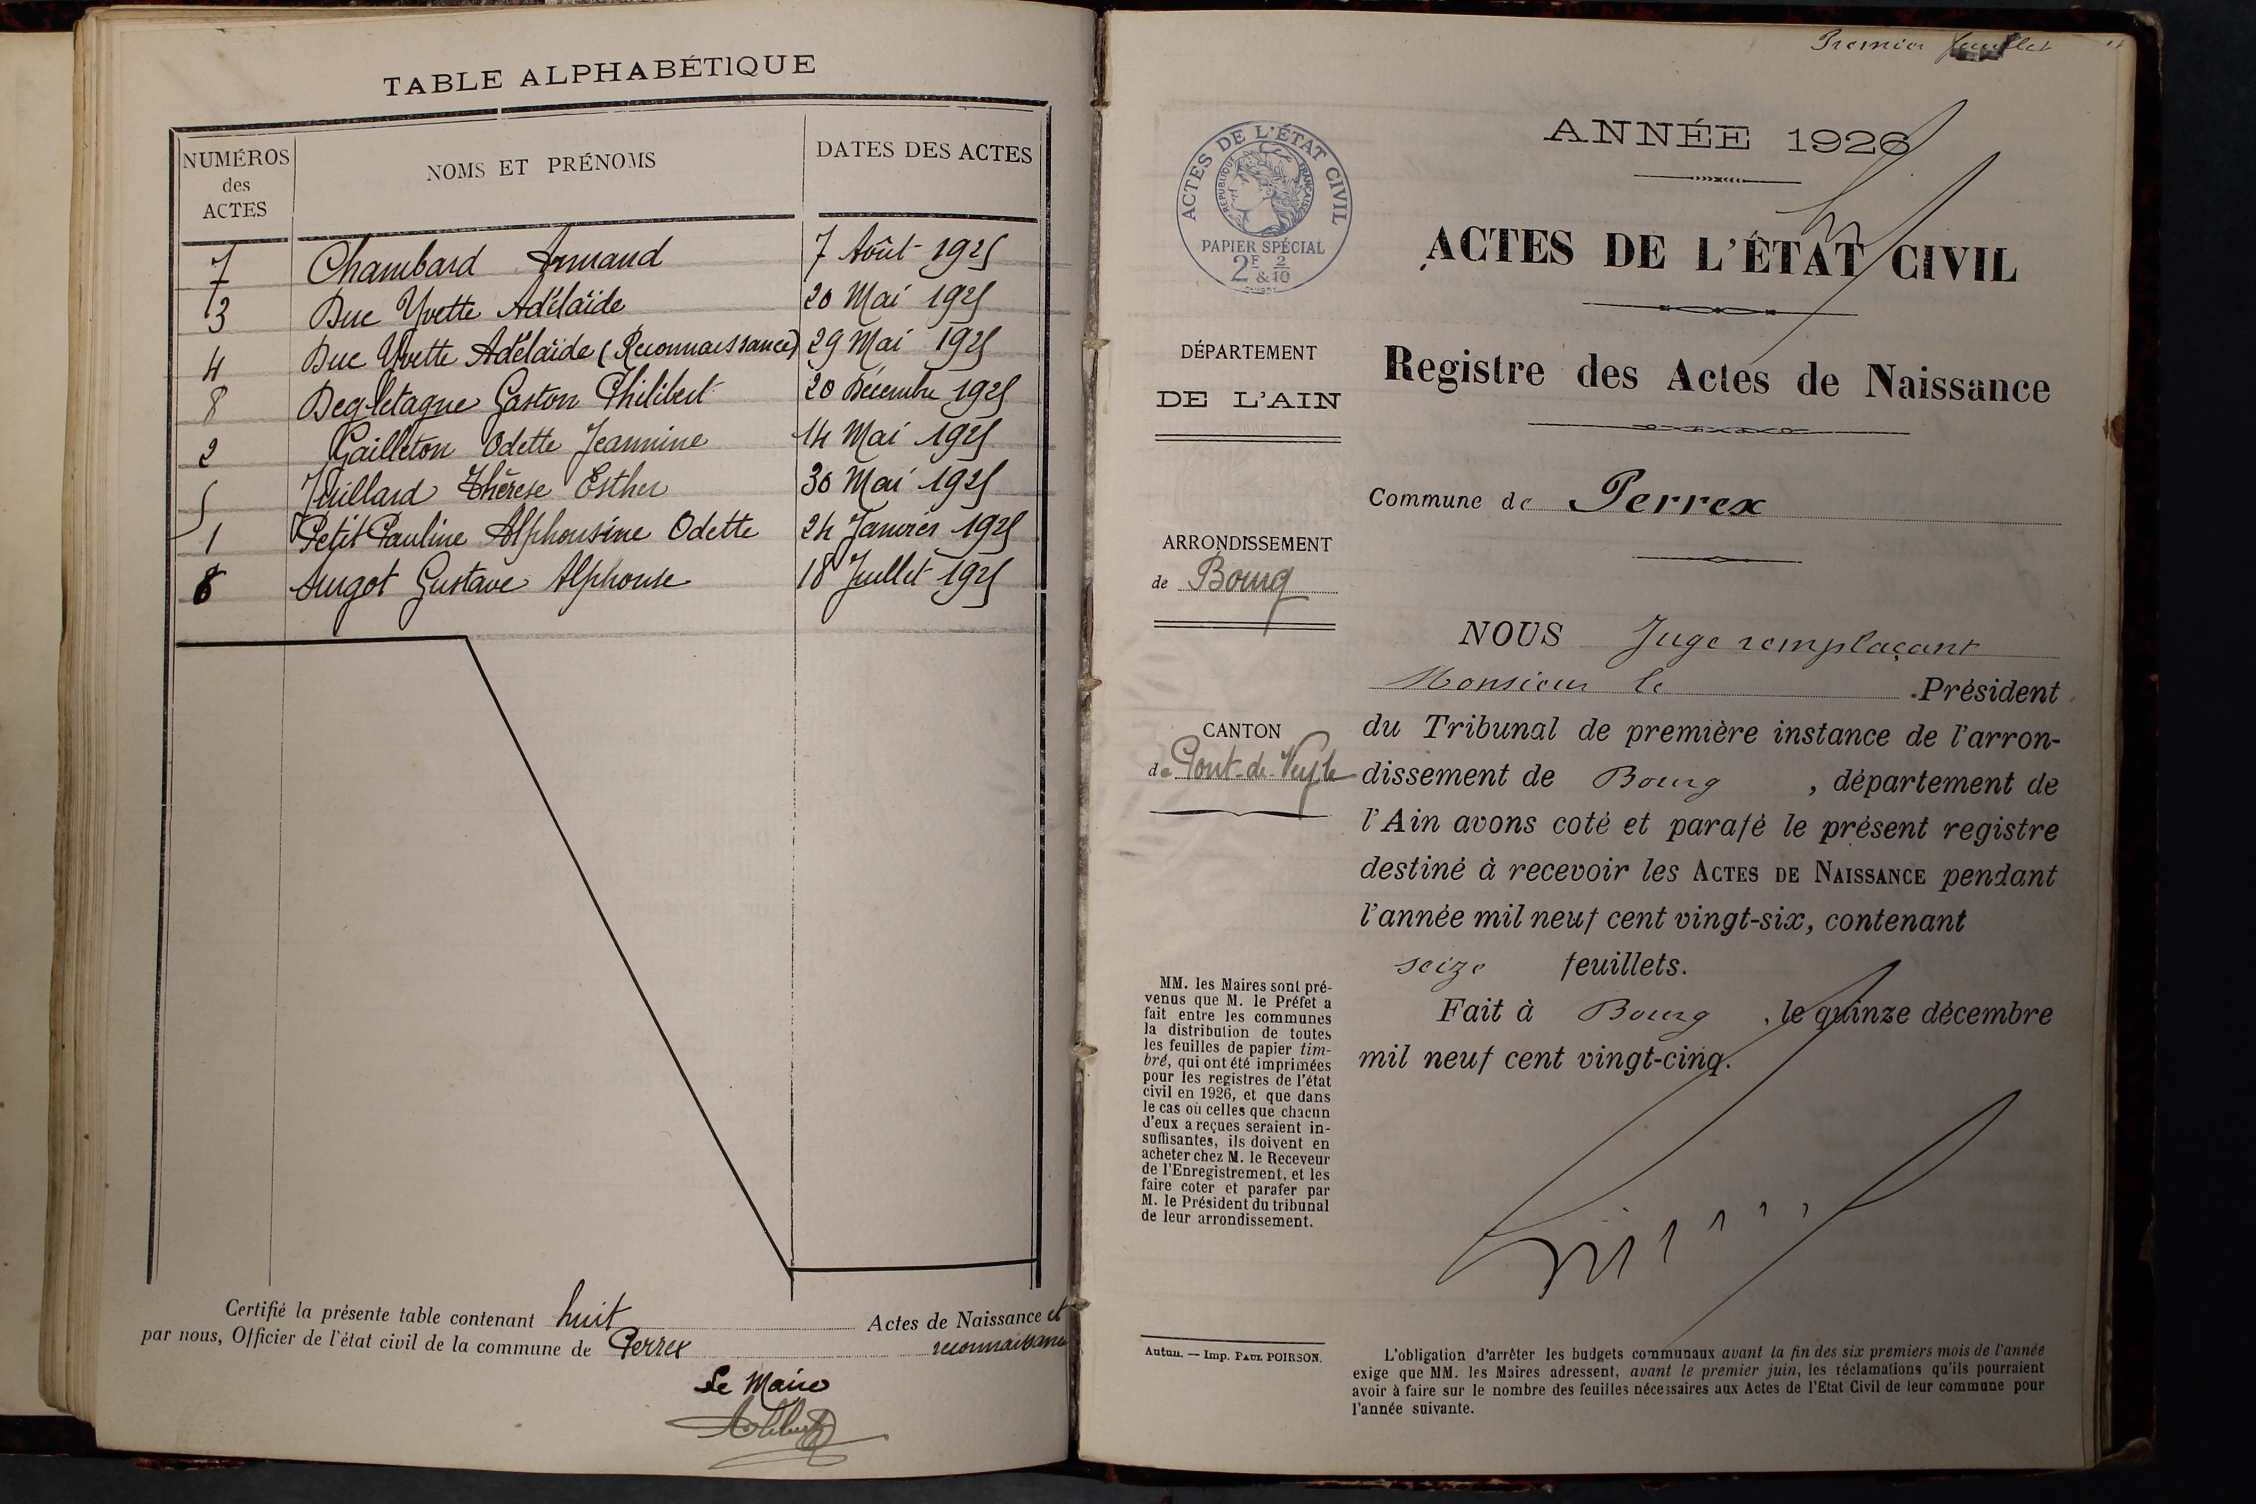 TABLE ALPHABÉTIQUE
NUMÉROS des ACTES NOMS ET PRÉNOMS DATES DES ACTES
7 Chambard Armand 7 Août 1925
3 Duc Yvette Adélaïde 20 Mai 1925
4 Duc Yvette Adélaïde (Reconnaissance) 29 Mai 1925
8 Degletagne Gaston Philibert 20 Décembre 1925
2 Gailleton Odette Jeannine 14 Mai 1925
5 Juillard Thérèse Esther 30 Mai 1925
1 Petit Pauline Alphonsine Odette 24 Janvier 1925
6 Sugot Gustave Alphonse 18 Juillet 1925
Certifié la présente table contenant huit Actes de Naissance et
par nous, Officier de l'état civil de la commune de Perrex reconnaissance
Le Maire
Premier feuillet
ANNÉE 1926
ACTES DE L'ÉTAT CIVIL
RÉPUBLIQUE FRANÇAISE
PAPIER SPÉCIAL
2F & 2/10
ACTES DE L'ÉTAT CIVIL
Registre des Actes de Naissance
DÉPARTEMENT
DE L'AIN
Commune de Perrex
ARRONDISSEMENT
de Bourg
CANTON
de Pont-de-Veyle
NOUS Juge remplaçant
Monsieur le Président
du Tribunal de première instance de l'arron-
dissement de Bourg, département de
l'Ain avons coté et parafé le présent registre
destiné à recevoir les ACTES DE NAISSANCE pendant
l'année mil neuf cent vingt-six, contenant
seize feuillets.
Fait à Bourg, le quinze décembre
mil neuf cent vingt-cinq.
MM. les Maires sont pré-
venus que M. le Préfet a
fait entre les communes
la distribution de toutes
les feuilles de papier tim-
bré, qui ont été imprimées
pour les registres de l'état
civil en 1926, et que dans
le cas où celles que chacun
d'eux a reçues seraient in-
suffisantes, ils doivent en
acheter chez M. le Receveur
de l'Enregistrement, et les
faire coter et parafer par
M. le Président du tribunal
de leur arrondissement.
Autun. — Imp. PAUL POIRSON.
L'obligation d'arrêter les budgets communaux avant la fin des six premiers mois de l'année
exige que MM. les Maires adressent, avant le premier juin, les réclamations qu'ils pourraient
avoir à faire sur le nombre des feuilles nécessaires aux Actes de l'Etat Civil de leur commune pour
l'année suivante.